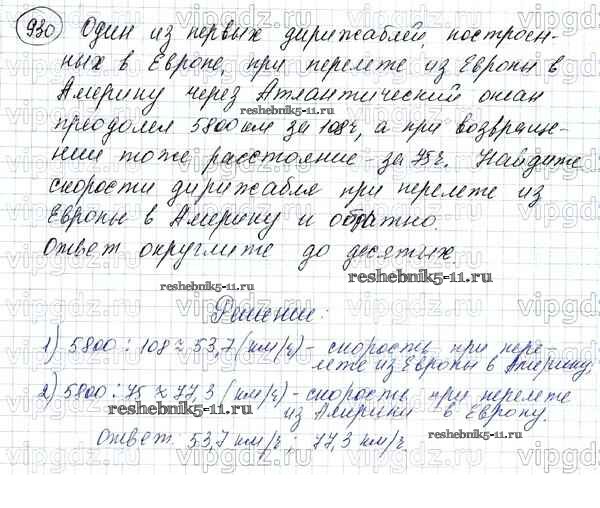 930 Один из первых дирижаблей, построен-
ных в Европе, при перелете из Европы в
Америку через Атлантический океан
reshebnik5-11.ru
преодолел 5800 км за 108 ч, а при возвраще-
нии тоже расстояние - за 75 ч. Найдите
скорости дирижабля при перелете из
Европы в Америку и обратно.
Ответ округлите до десятых.
reshebnik5-11.ru
Решение:
1) 5800 : 108 ≈ 53,7 (км/ч) - скорость при пере-
лете из Европы в Америку;
2) 5800 : 75 ≈ 77,3 (км/ч) - скорость при перелете
reshebnik5-11.ru
из Америки в Европу.
Ответ. 53,7 км/ч; 77,3 км/ч.
reshebnik5-11.ru
vipgdz.ru